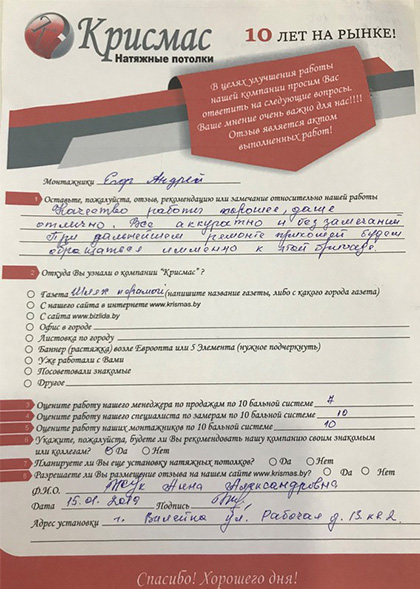 Крисмас
Натяжные потолки
10 ЛЕТ НА РЫНКЕ!
В целях улучшения работы
нашей компании просим Вас
ответить на следующие вопросы.
Ваше мнение очень важно для нас!!!!
Отзыв является актом
выполненных работ!
Монтажники Егор Андрей
1 Оставьте, пожалуйста, отзыв, рекомендацию или замечание относительно нашей работы
Качество работы хорошее, даже
отлично. Все аккуратно и без замечаний
При дальнейшем ремонте прихожей будем
обращаться именно к этой бригаде.
2 Откуда Вы узнали о компании "Крисмас" ?
Газета Шлях перамогі (напишите название газеты, либо с какого города газета)
С нашего сайта в интернете www.krismas.by
С сайта www.bizlida.by
Офис в городе
Листовка по городу
Баннер (растяжка) возле Евроопта или 5 Элемента (нужное подчеркнуть)
Уже работали с Вами
Посоветовали знакомые
Другое
3 Оцените работу нашего менеджера по продажам по 10 бальной системе 7
4 Оцените работу нашего специалиста по замерам по 10 бальной системе 10
5 Оцените работу наших монтажников по 10 бальной системе 10
6 Укажите, пожалуйста, будете ли Вы рекомендовать нашу компанию своим знакомым
или коллегам? Да Нет
7 Планируете ли Вы еще установку натяжных потолков? Да Нет
8 Разрешаете ли Вы размещение отзыва на нашем сайте www.krismas.by? Да Нет
Ф.И.О. Жук Анна Александровна
Дата 15.01.2019 Подпись
Адрес установки г. Вилейка ул. Рабочая д. 13 кв 2.
Спасибо! Хорошего дня!